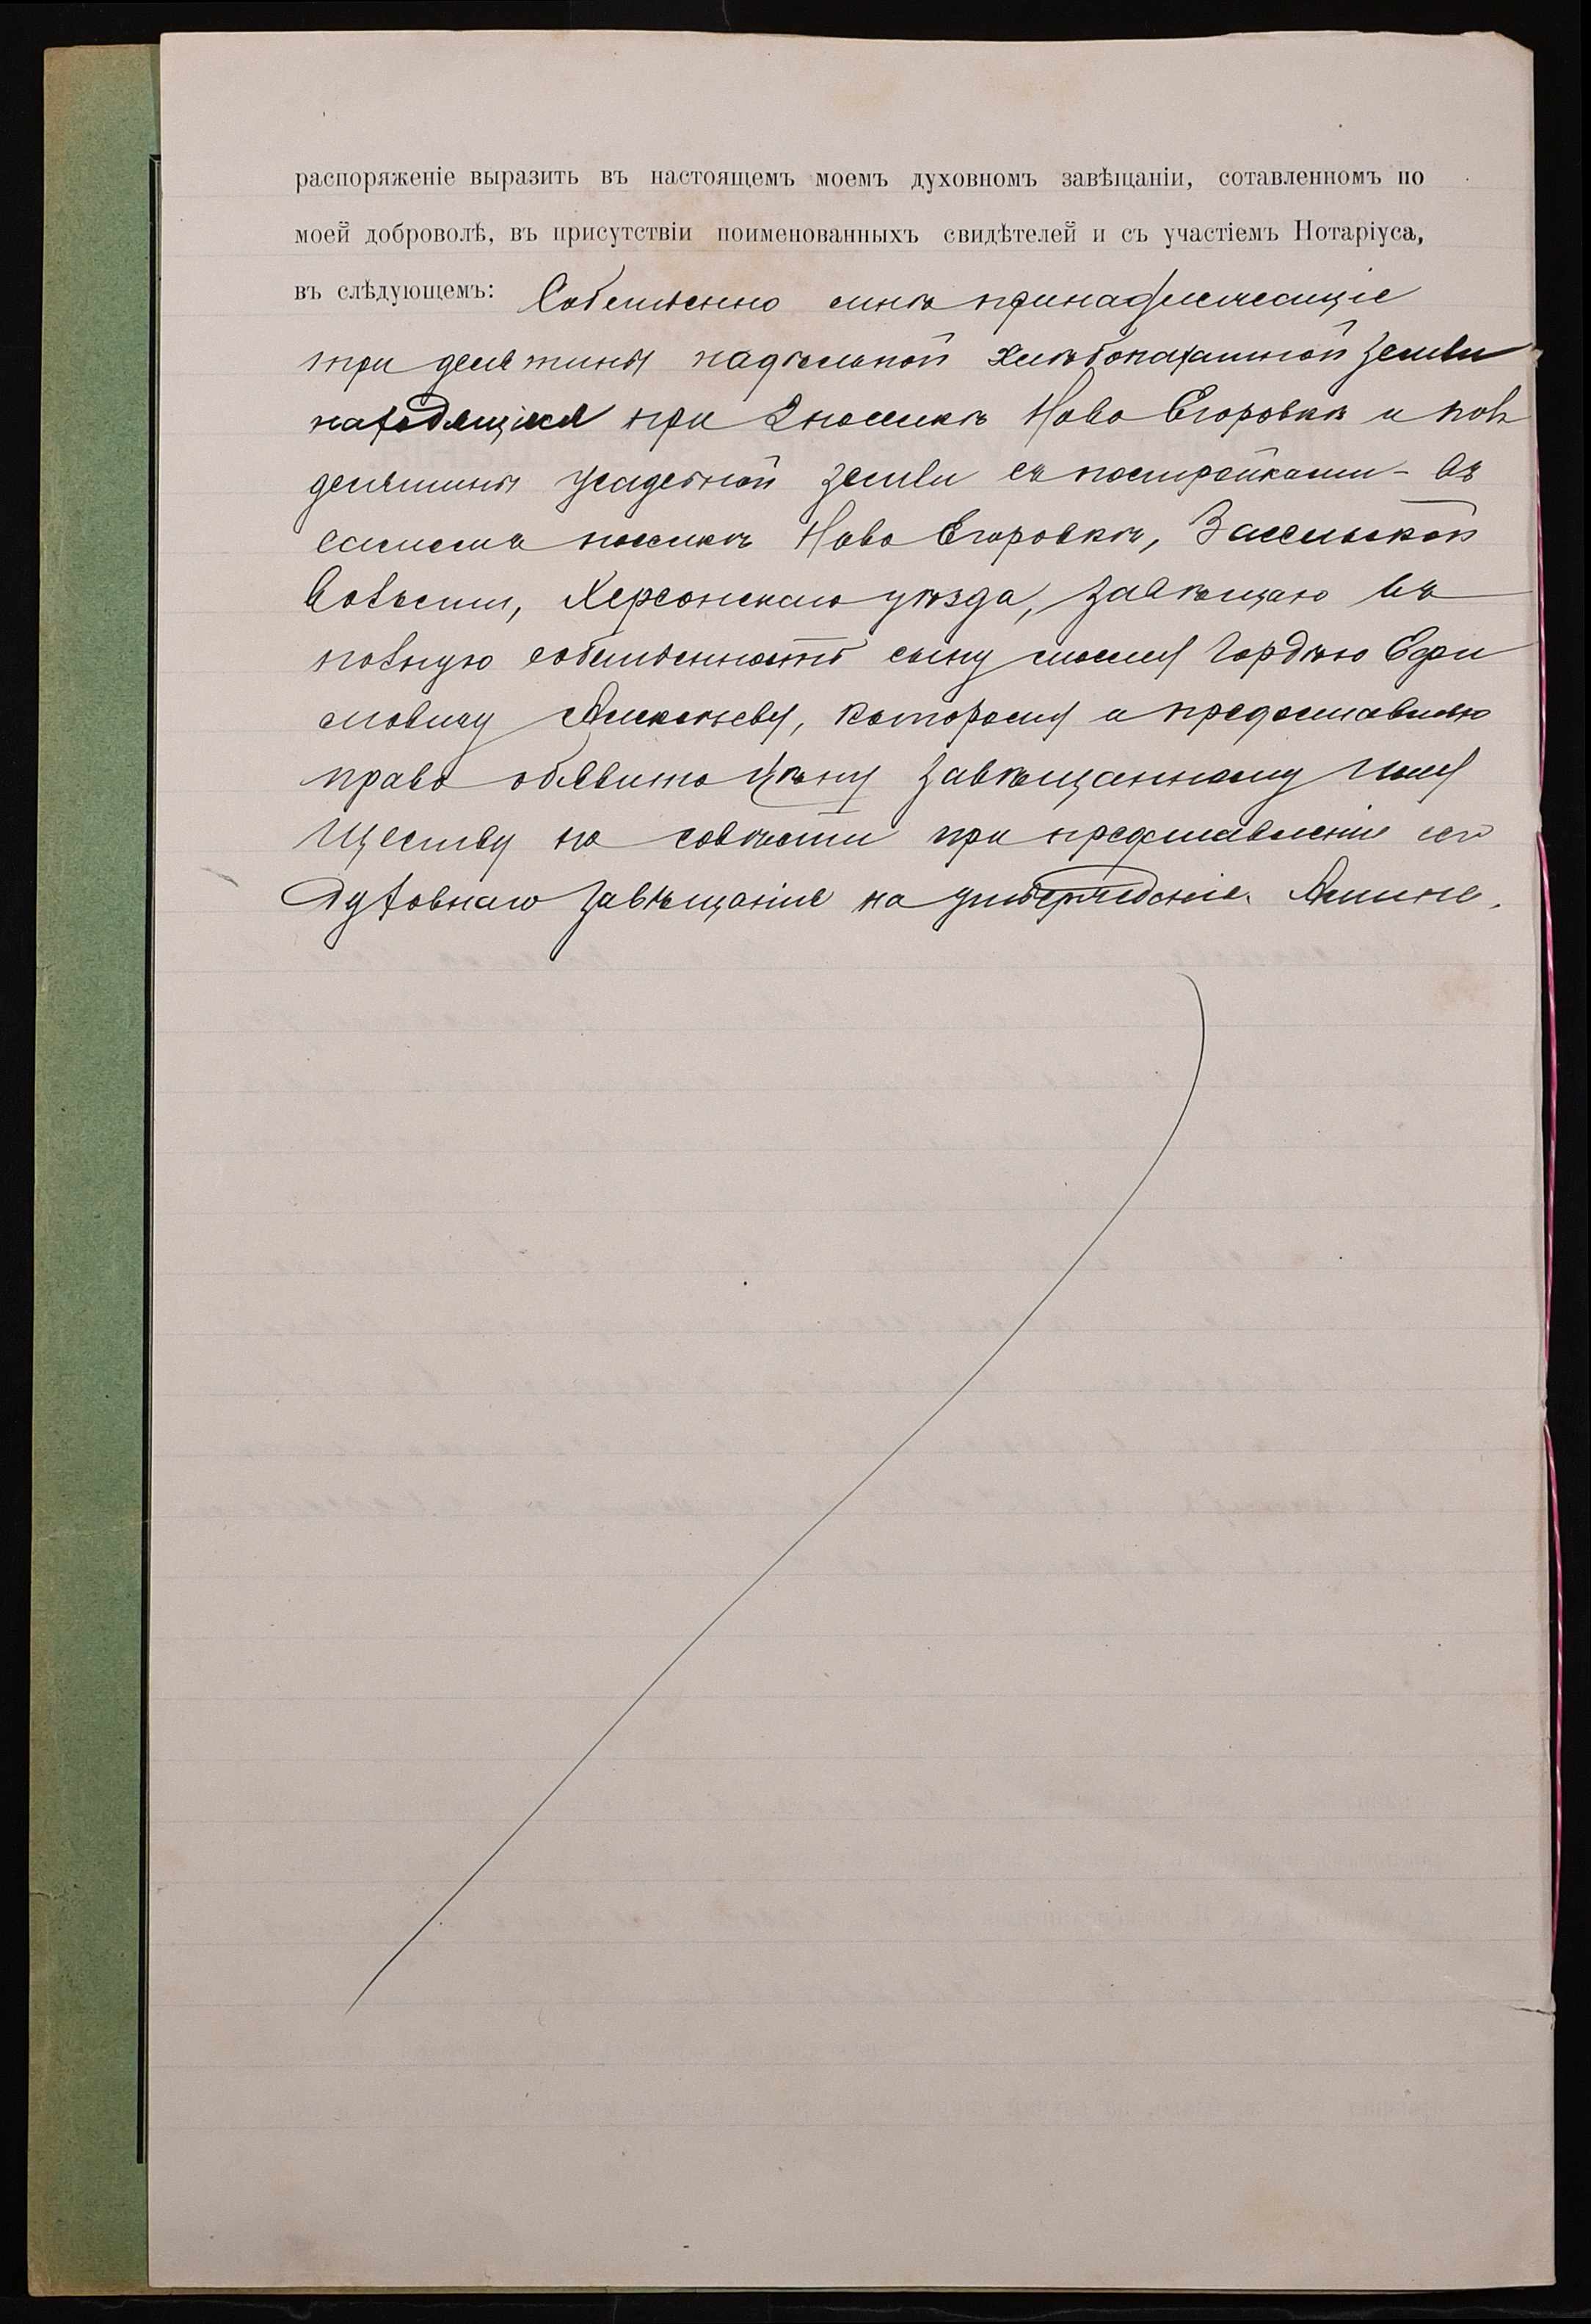 распоряженіе выразить въ настоящемъ моемъ духовномъ завѣщаніи, сотавленномъ по
моей доброволѣ, въ присутствіи поименованныхъ свидѣтелей и съ участіемъ Нотаріуса,
въ слѣдующемъ: Собственно мнѣ принадлежащіе
три десятины надѣльной хлѣбопахатной земли
находящіеся при поселкѣ Ново Егоровкѣ и пол
десятины усадебной земли съ постройками - въ
самомъ поселкѣ Ново Егоровкѣ, Засельской
волости, Херсонскаго уѣзда, завѣщаю въ
полную собственность сыну моему Гордѣю Ефи
мовичу Алексѣеву, которому и предоставляю
право объявить цѣну завѣщанному иму
ществу по совѣсти при представленіи сего
духовнаго завѣщанія на утвержденіе.